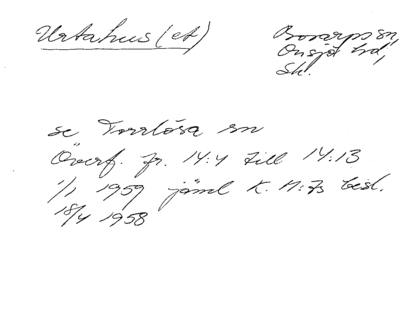 Urtahus (et)
Bosarps sn,
Onsjö hd,
Sk.
se Torrlösa sn
Överf. fr. 14:4 till 14:13
1/1 1959 jäml K. M:ts besl.
18/4 1958